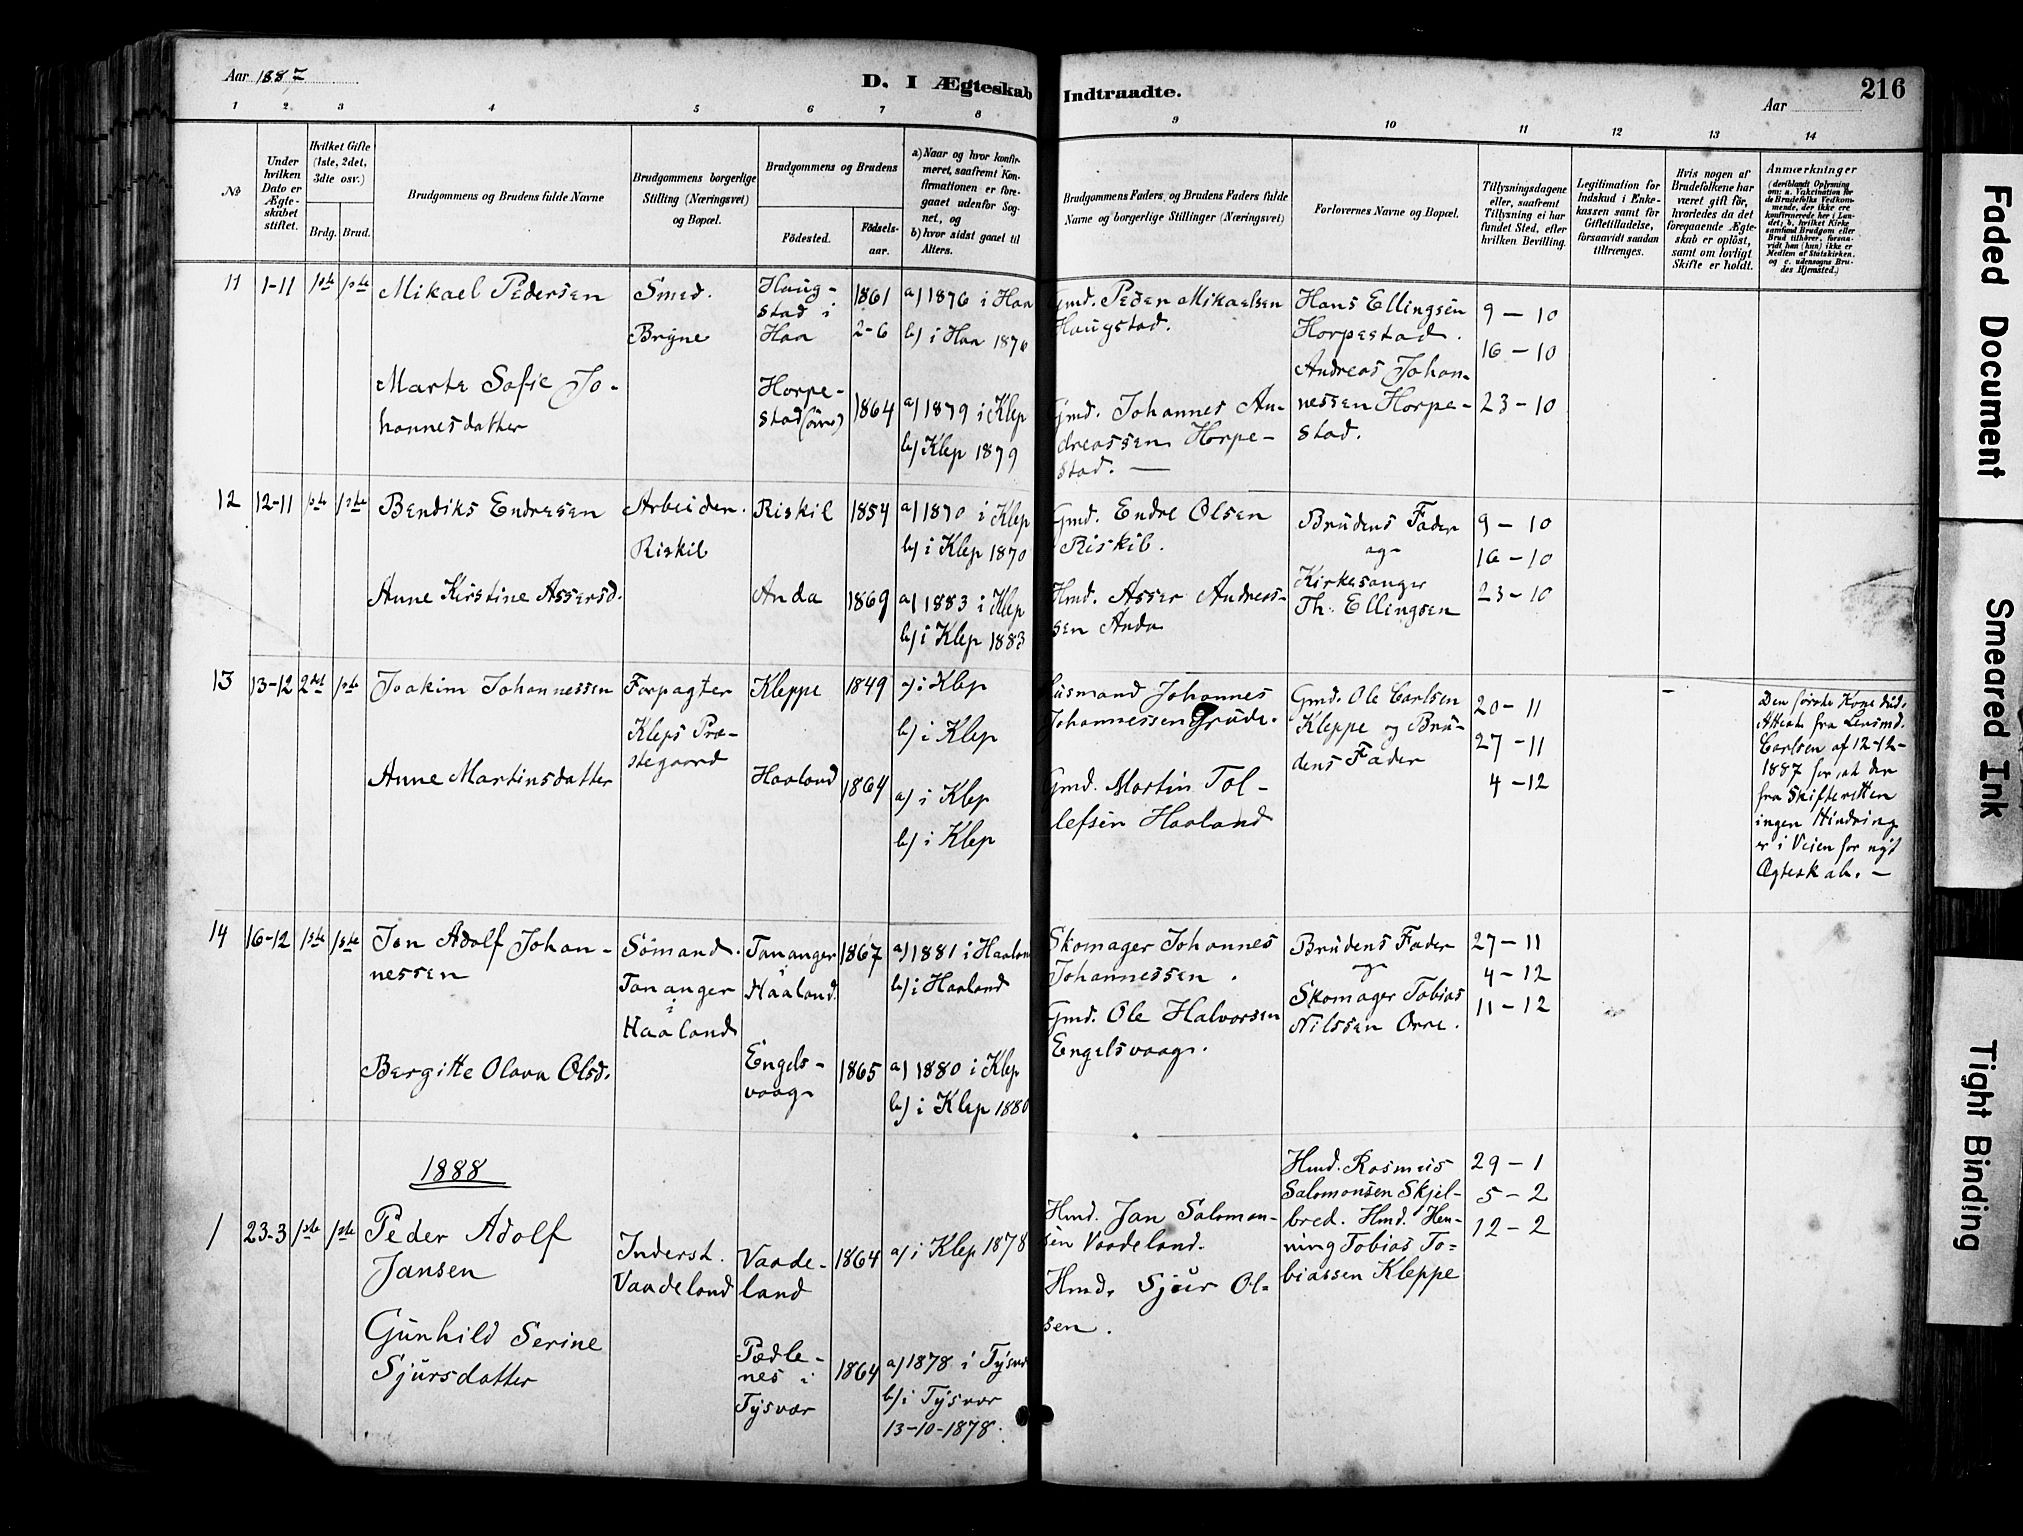 Aar 1887
D. I Ægteskab Indtraadte.
Aar
216
1 2 3 4 5 6 7 8 9 10 11 12 13 14
No
Under hvilken Dato er Ægteskabet stiftet.
Hvilket Gifte (1ste, 2det, 3die osv.)
Brdg. Brud.
Brudgommens og Brudens fulde Navne
Brudgommens borgerlige Stilling (Næringsvei) og Bopæl.
Brudgommens og Brudens
Fødested.
Fødselsaar.
a) Naar og hvor konfirmeret, saafremt Konfirmationen er foregaaet udenfor Sognet, og
b) hvor sidst gaaet til Alters.
Brudgommens Faders, og Brudens Faders fulde Navne og borgerlige Stillinger (Næringsvei)
Forlovernes Navne og Bopæl.
Tillysningsdagene eller, saafremt Tillysning ei har fundet Sted, efter hvilken Bevilling.
Legitimation for Indskud i Enkekassen samt for Giftetilladelse, forsaavidt saadan tiltrænges.
Hvis nogen af Brudefolkene har været gift før, hvorledes da det foregaaende Ægteskab er opløst, samt om lovligt Skifte er holdt.
Anmærkninger
(deriblandt Oplysning om: a. Vakcination for de Brudefolks Vedkommende, der ikke ere konfirmerede her i Landet; b. hvilket Kirkesamfund Brudgom eller Brud tilhører, forsaavidt han (hun) ikke er Medlem af Statskirken, og c. udensogns Brudes Hjemsted.)
11 1-11 1ste 1ste
Mikael Pedersen
Smed.
Bryne
Haug-
stad i
Haa
1861
2-6
a) 1876 i Haa
b) i Haa 1876
Gmd. Peder Mikaelsen
Haugstad.
Hans Ellingsen
Horpestad.
Andreas Johan-
nessen Horpe-
stad.
9-10
16-10
23-10
Marte Sofie Jo-
hannesdatter
Horpe-
stad
1864
a) 1879 i Klep
b) Klep 1879
Gmd. Johannes An-
dreassen Horpe-
stad. —
12 12-11 1ste 1ste
Bendiks Endresen
Arbeider.
Riskil
Riskil
1854
a) 1870 i Klep
b) i Klep 1870
Gmd. Endre Olsen
Riskil.
Brudens Fader
og
Kirkesanger
Th. Ellingsen
9-10
16-10
23-10
Anne Kirstine Assersd.
Anda
1869
a) 1883 i Klep
b) i Klep 1883
Hmd. Asser Andreas-
sen Anda
13 13-12 2det 1ste
Joakim Johannessen
Forpagter
Kleps Præ-
stegaard
Kleppe
1849
a) i Klep
b) i Klep
Husmand Johannes
Johannessen Grude.
Gmd. Ole Carlsen
Kleppe og Bru-
dens Fader
20-11
27-11
4-12
Den første Kone død.
Attest fra Lensmd.
Carlsen af 12-12-
1887 for, at der
fra Skifteretten
ingen Hindring
er i Veien for nyt
Ægteskab. —
Anne Martinsdatter
Haaland
1864
a) i Klep
b) i Klep
Gmd. Martin Tol-
lefsen Haaland
14 16-12 1ste 1ste
Jon Adolf Johan-
nessen
Sømand.
Tananger
i
Haaland
Tananger
i
Haaland.
1867
a) 1881 i Haaland
b) i Haaland
Skomager Johannes
Johannessen.
Brudens Fader
og
Skomager Tobias
Nilssen Orre.
27-11
4-12
11-12
Bergitte Olava Olsd.
Engels-
vaag
1865
a) 1880 i Klep
b) i Klep 1880
Gmd. Ole Halvorsen
Engelsvaag.
1888
1 23-3 1ste 1ste
Peder Adolf
Jansen
Inderst.
Vaadeland
Vaade-
land
1864
a) i Klep 1878
Hmd. Jan Salomon-
sen Vaadeland.
Hmd. Rasmus
Salomonsen Skjel-
bred. Hmd. Hen-
ning Tobias To-
biassen Kleppe
29-1
5-2
12-2
Gunhild Serine
Sjursdatter
Padle-
nes i
Tysvær
1864
a) 1878 i Tysvær
b) i Tysvær
13-10-1878.
Hmd. Sjur Ol-
sen.
Faded Document
Smeared Ink
Tight Binding